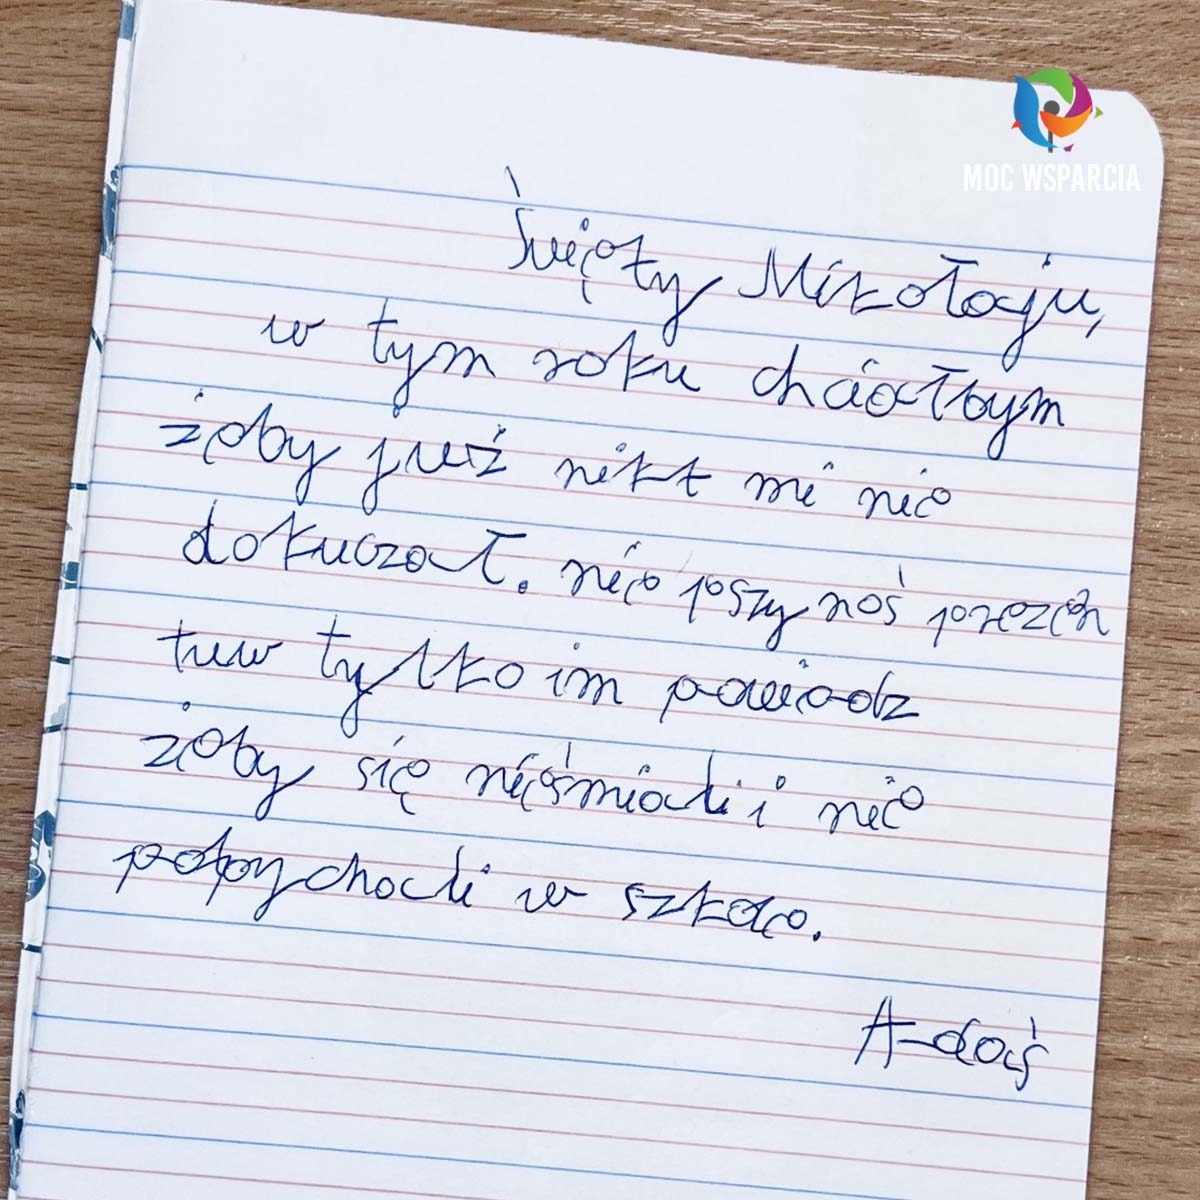 MOC WSPARCIA
Święty Mikołaju,
w tym roku chciałbym
żeby już nikt mi nie
dokuczał. nie pszynoś prezen
tuw tylko im powiedz
żeby się nieśmiali i nie
popychali w szkole.
A-doś